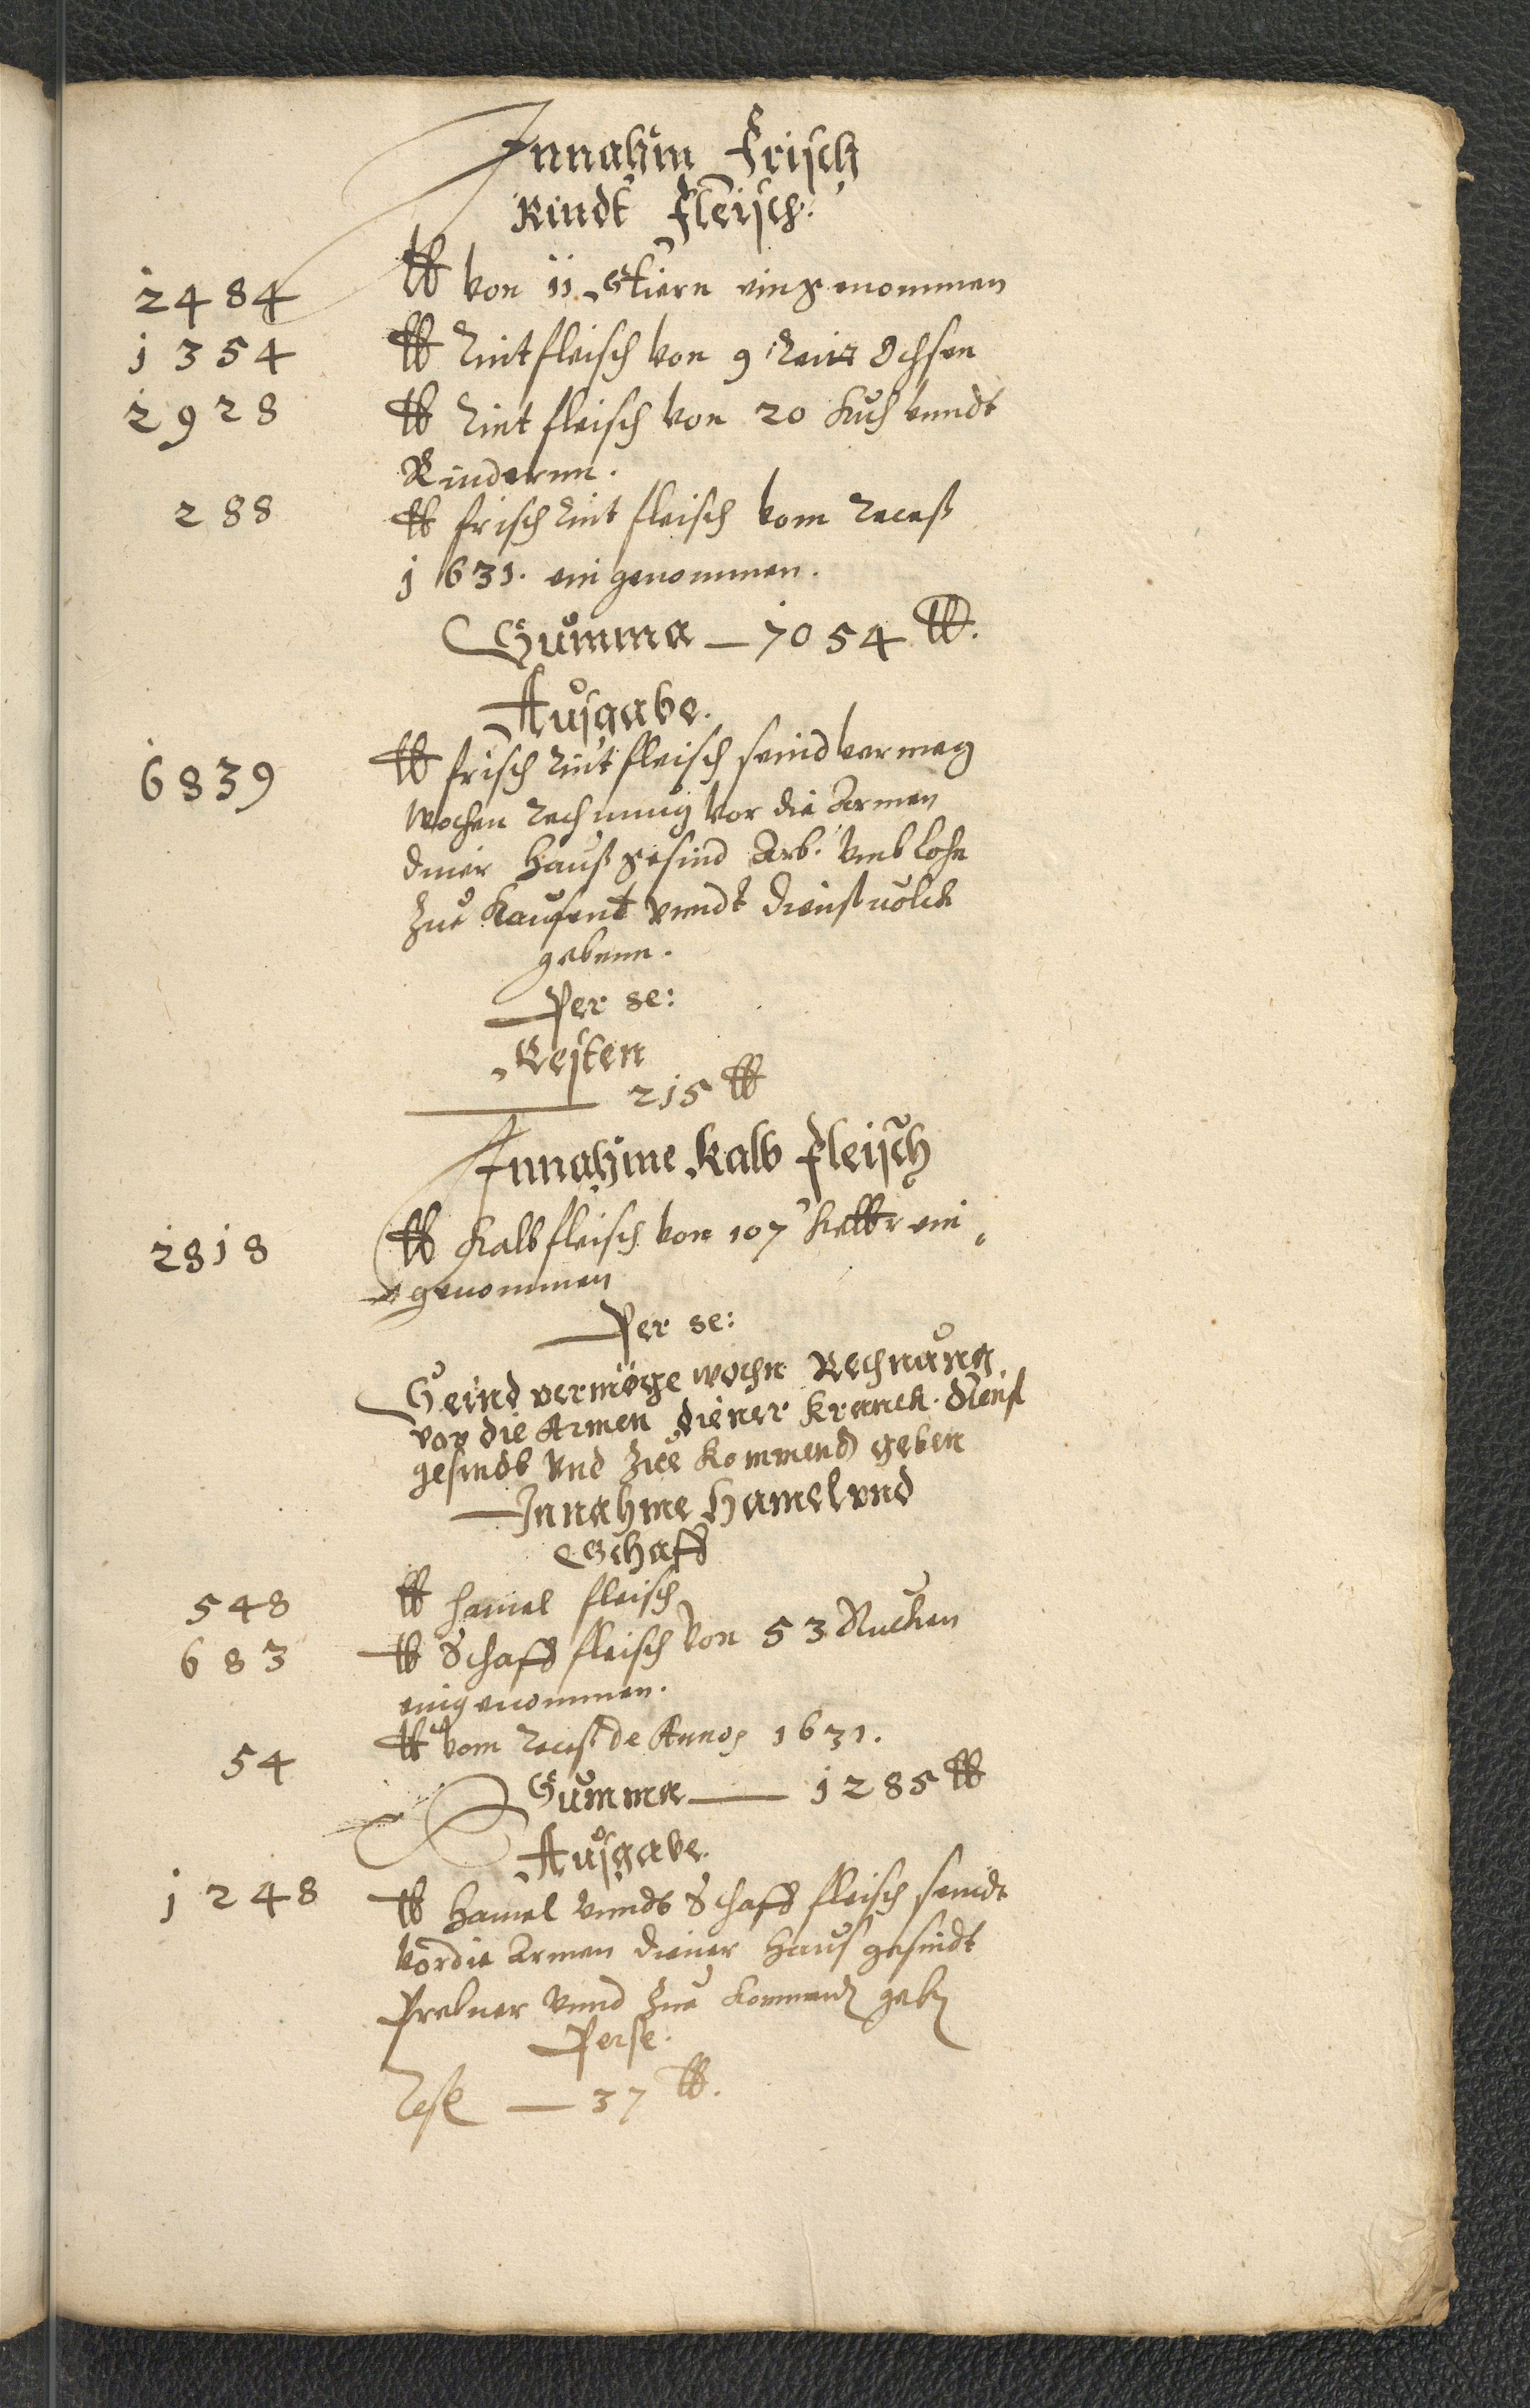 Innahm Frisch
Rindt Fleisch.
2484 ℔ von 11 Stiern eingenommen
1354 ℔ Rintfleisch von 9 Ochsen
2928 ℔ Rint fleisch von 20 Kuh vnndt
Rindernn.
288 ℔ frisch Rint fleisch vom Recess
1631. ein genommen.
Summa — 7054 ℔.
Ausgabe.
6839 ℔ frisch Rint fleisch seind vermeg
Wochen Rechnung vor die Armen
diner Hauß gesind Arb. vmb lohn
Zue vnndt dienstvolck
gebenn.
Per se:
Resten
215 ℔
Innahme Kalb Fleisch
2818 ℔ Kalbfleisch von 107 Kelbr ein
genommen
Per se:
Seind vermöge wochn Rechnung
vor die Armen diener Kranck. dienst
gesindt vnd Zue Kommend geben
Innahme Hamel vnd
Schaff
548 ℔ hamel fleisch
683 ℔ Schaff fleisch von 53 Stucken
eingenommen.
54 ℔ vom Recess de Anno 1631.
Summa — 1285 ℔
Ausgabe.
1248 ℔ Hamel vnndt Schaff fleisch seindt
vor die Armen diener Haus gesindt
vnnd Zue Kommend geben
Per se.
Rest — 37 ℔.